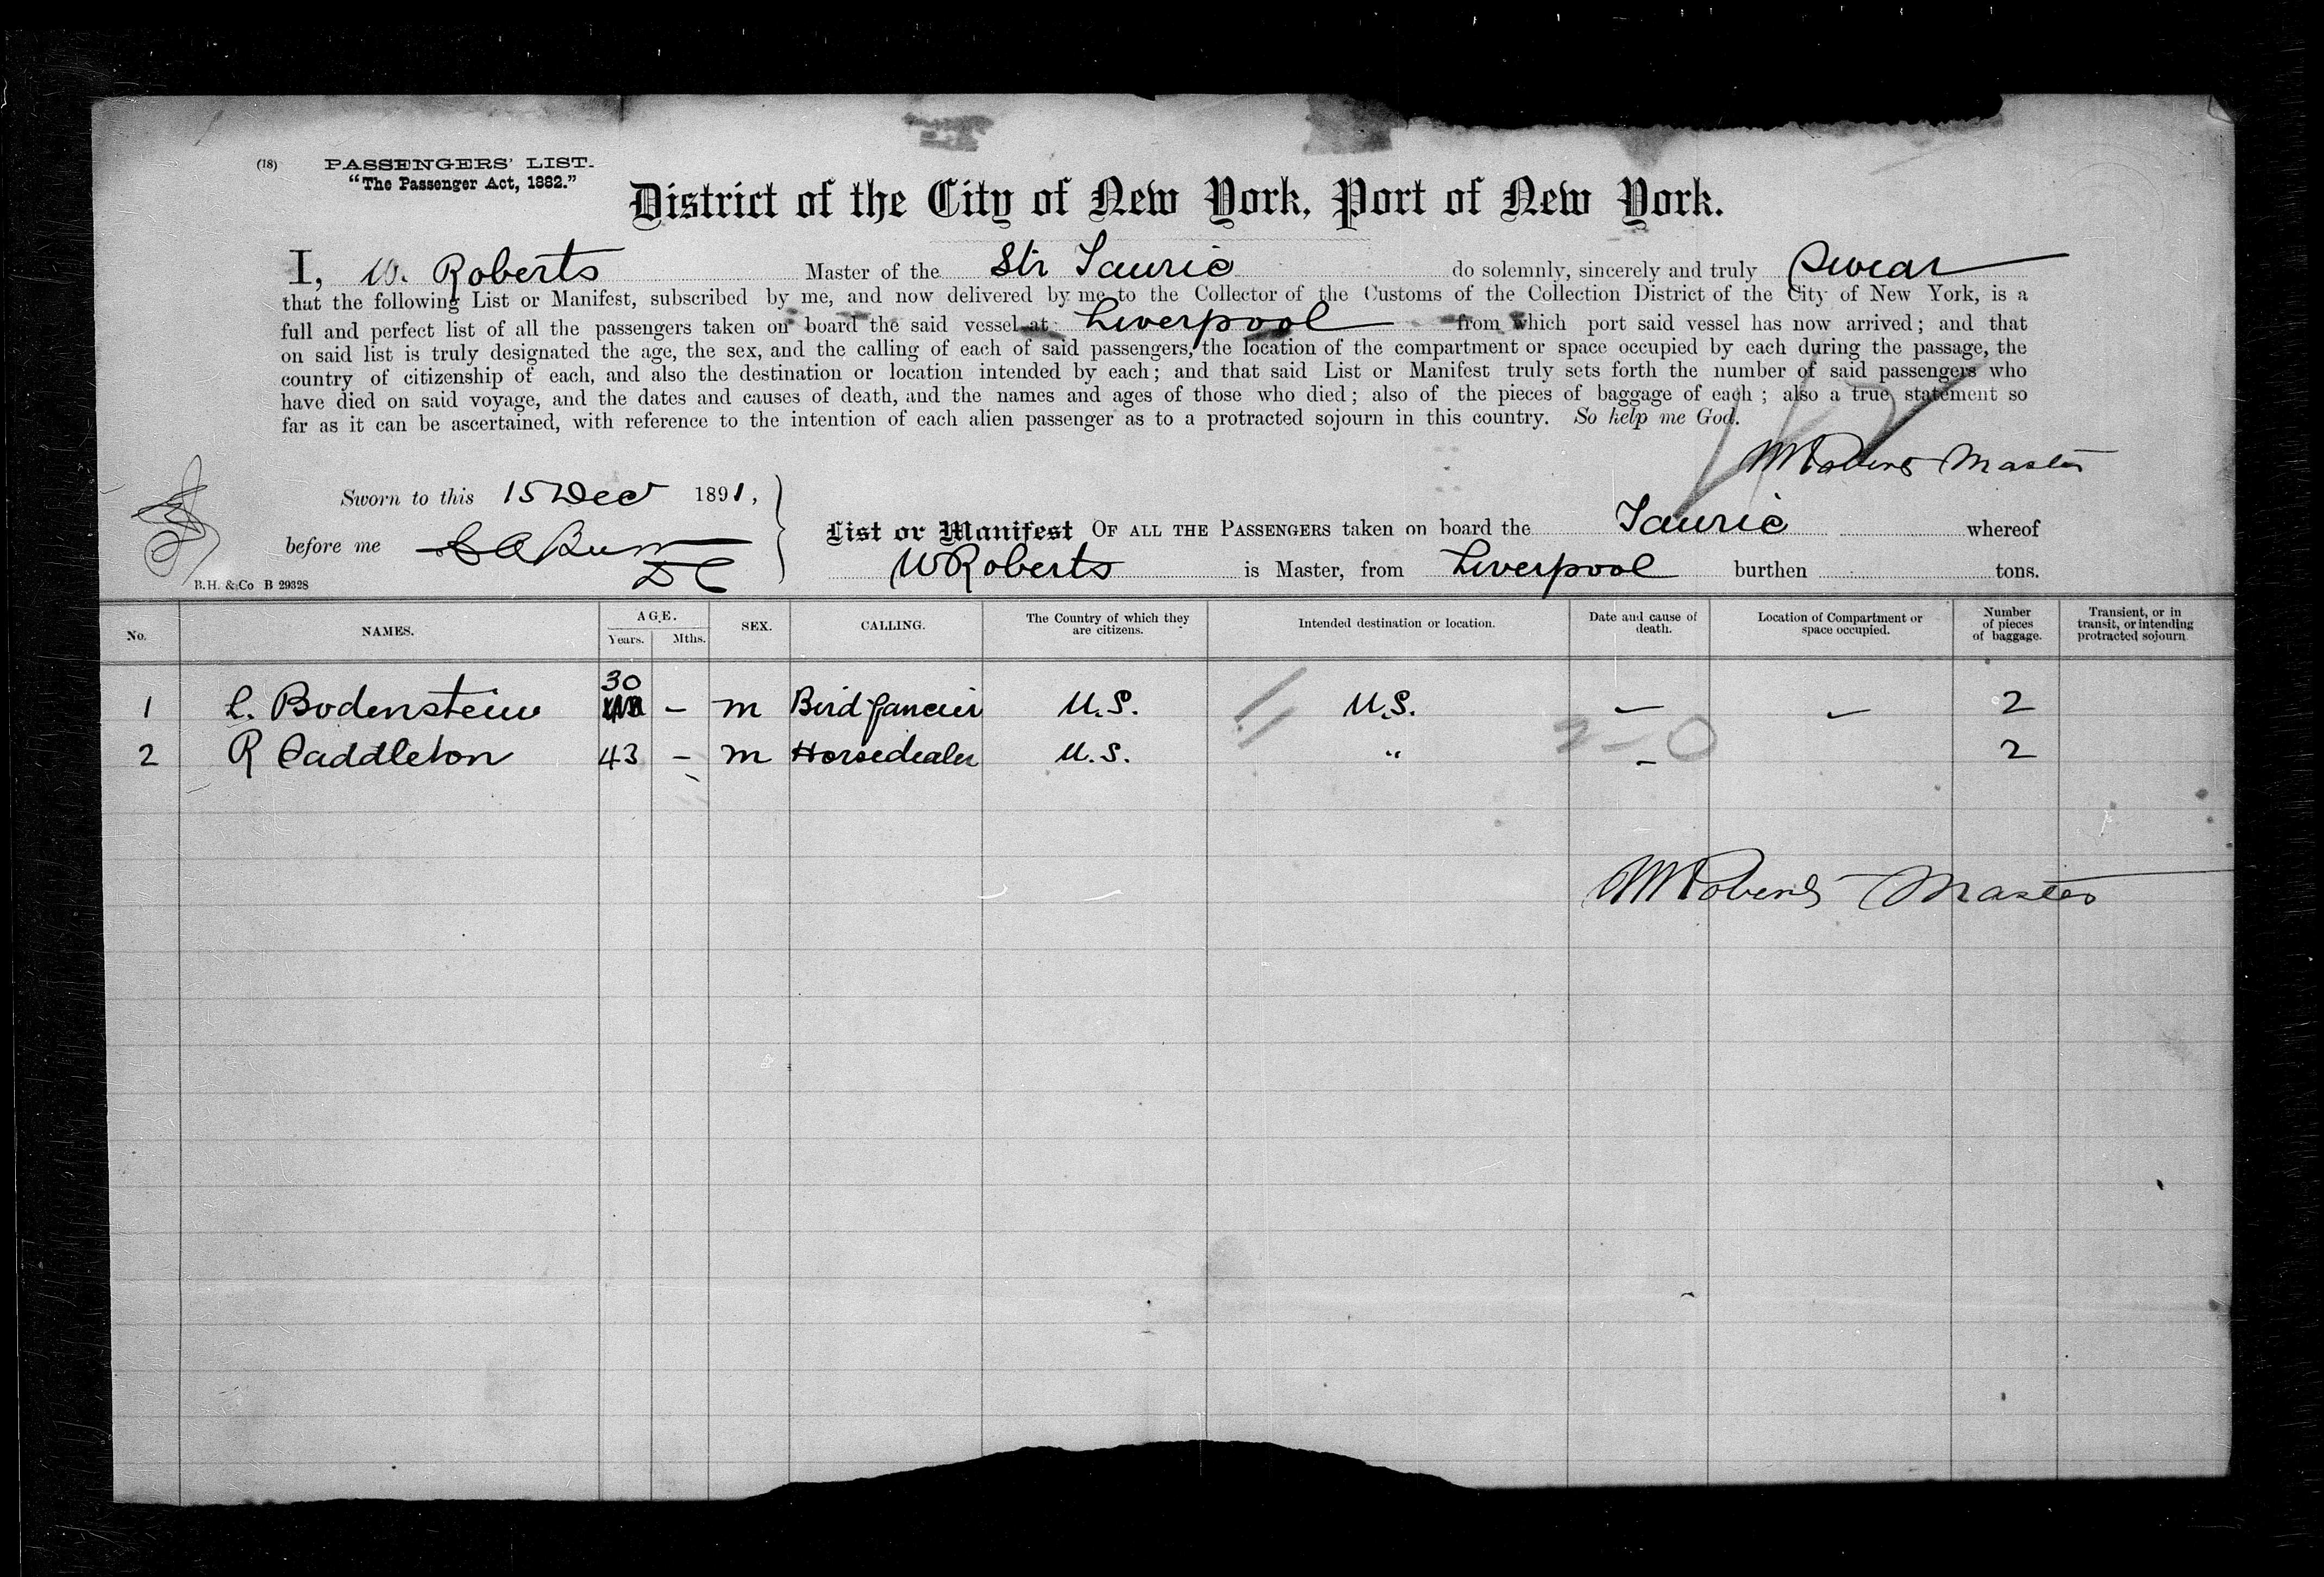 (18) PASSENGERS' LIST.
"The Passenger Act, 1882."
District of the City of New York, Port of New York.
I, W. Roberts Master of the Str Tauric do solemnly, sincerely and truly Swear
that the following List or Manifest, subscribed by me, and now delivered by me to the Collector of the Customs of the Collection District of the City of New York, is a
full and perfect list of all the passengers taken on board the said vessel at Liverpool from which port said vessel has now arrived; and that
on said list is truly designated the age, the sex, and the calling of each of said passengers, the location of the compartment or space occupied by each during the passage, the
country of citizenship of each, and also the destination or location intended by each; and that said List or Manifest truly sets forth the number of said passengers who
have died on said voyage, and the dates and causes of death, and the names and ages of those who died; also of the pieces of baggage of each; also a true statement so
far as it can be ascertained, with reference to the intention of each alien passenger as to a protracted sojourn in this country. So help me God.
W Roberts Master
Sworn to this 15 Dec 1891,
before me
D C
List or Manifest OF ALL THE PASSENGERS taken on board the Tauric whereof
W Roberts is Master, from Liverpool burthen tons.
B.H. & Co B 29328
No. NAMES. AGE. Years. Mths. SEX. CALLING. The Country of which they are citizens. Intended destination or location. Date and cause of death. Location of Compartment or space occupied. Number of pieces of baggage. Transient, or in transit, or intending protracted sojourn
1 L. Bodenstein 30 – m Bird fancier U.S. U.S. – – 2
2 R Caddleton 43 – m Horsedealer U.S. " – 2
2–0
W Roberts Master